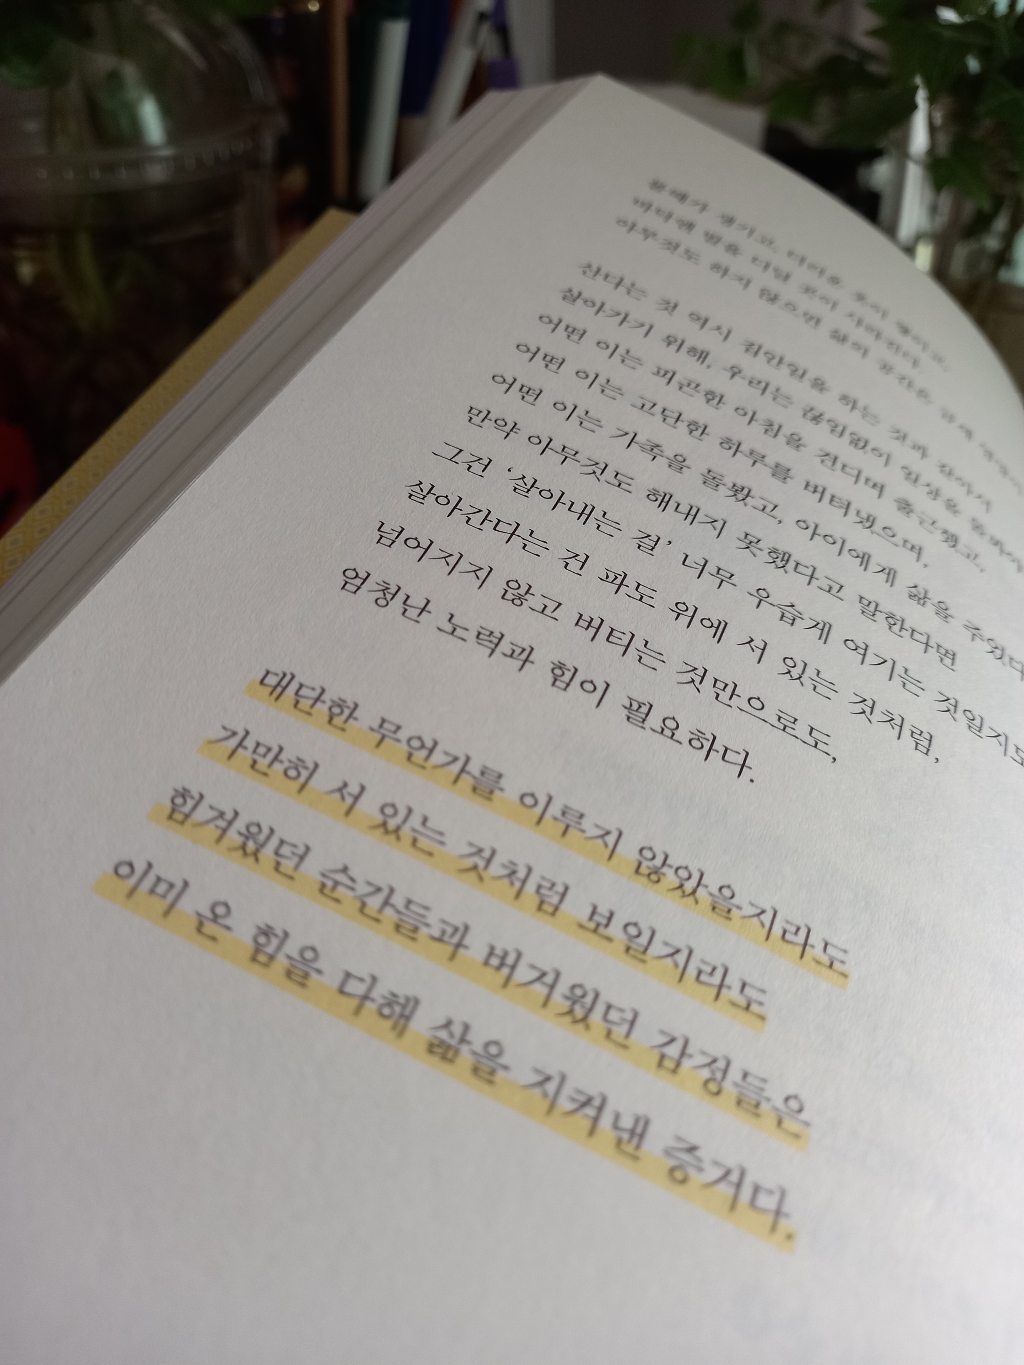 빨래가 생기고, 머리를 묶어
아무것도 하지 않으면 삶의 공간은 금세
산다는 것 역시 집안일을 하는 것과 같아서
살아가기 위해, 우리는 끊임없이 일상을
어떤 이는 피곤한 아침을 견디며 출근했고,
어떤 이는 고단한 하루를 버텨냈으며,
어떤 이는 가족을 돌봤고, 아이에게 삶을 주었다
만약 아무것도 해내지 못했다고 말한다면
그건 ‘살아내는 걸’ 너무 우습게 여기는 것일지도
살아간다는 건 파도 위에 서 있는 것처럼,
넘어지지 않고 버티는 것만으로도,
엄청난 노력과 힘이 필요하다.
대단한 무언가를 이루지 않았을지라도
가만히 서 있는 것처럼 보일지라도
힘겨웠던 순간들과 버거웠던 감정들은
이미 온 힘을 다해 삶을 지켜낸 증거다.